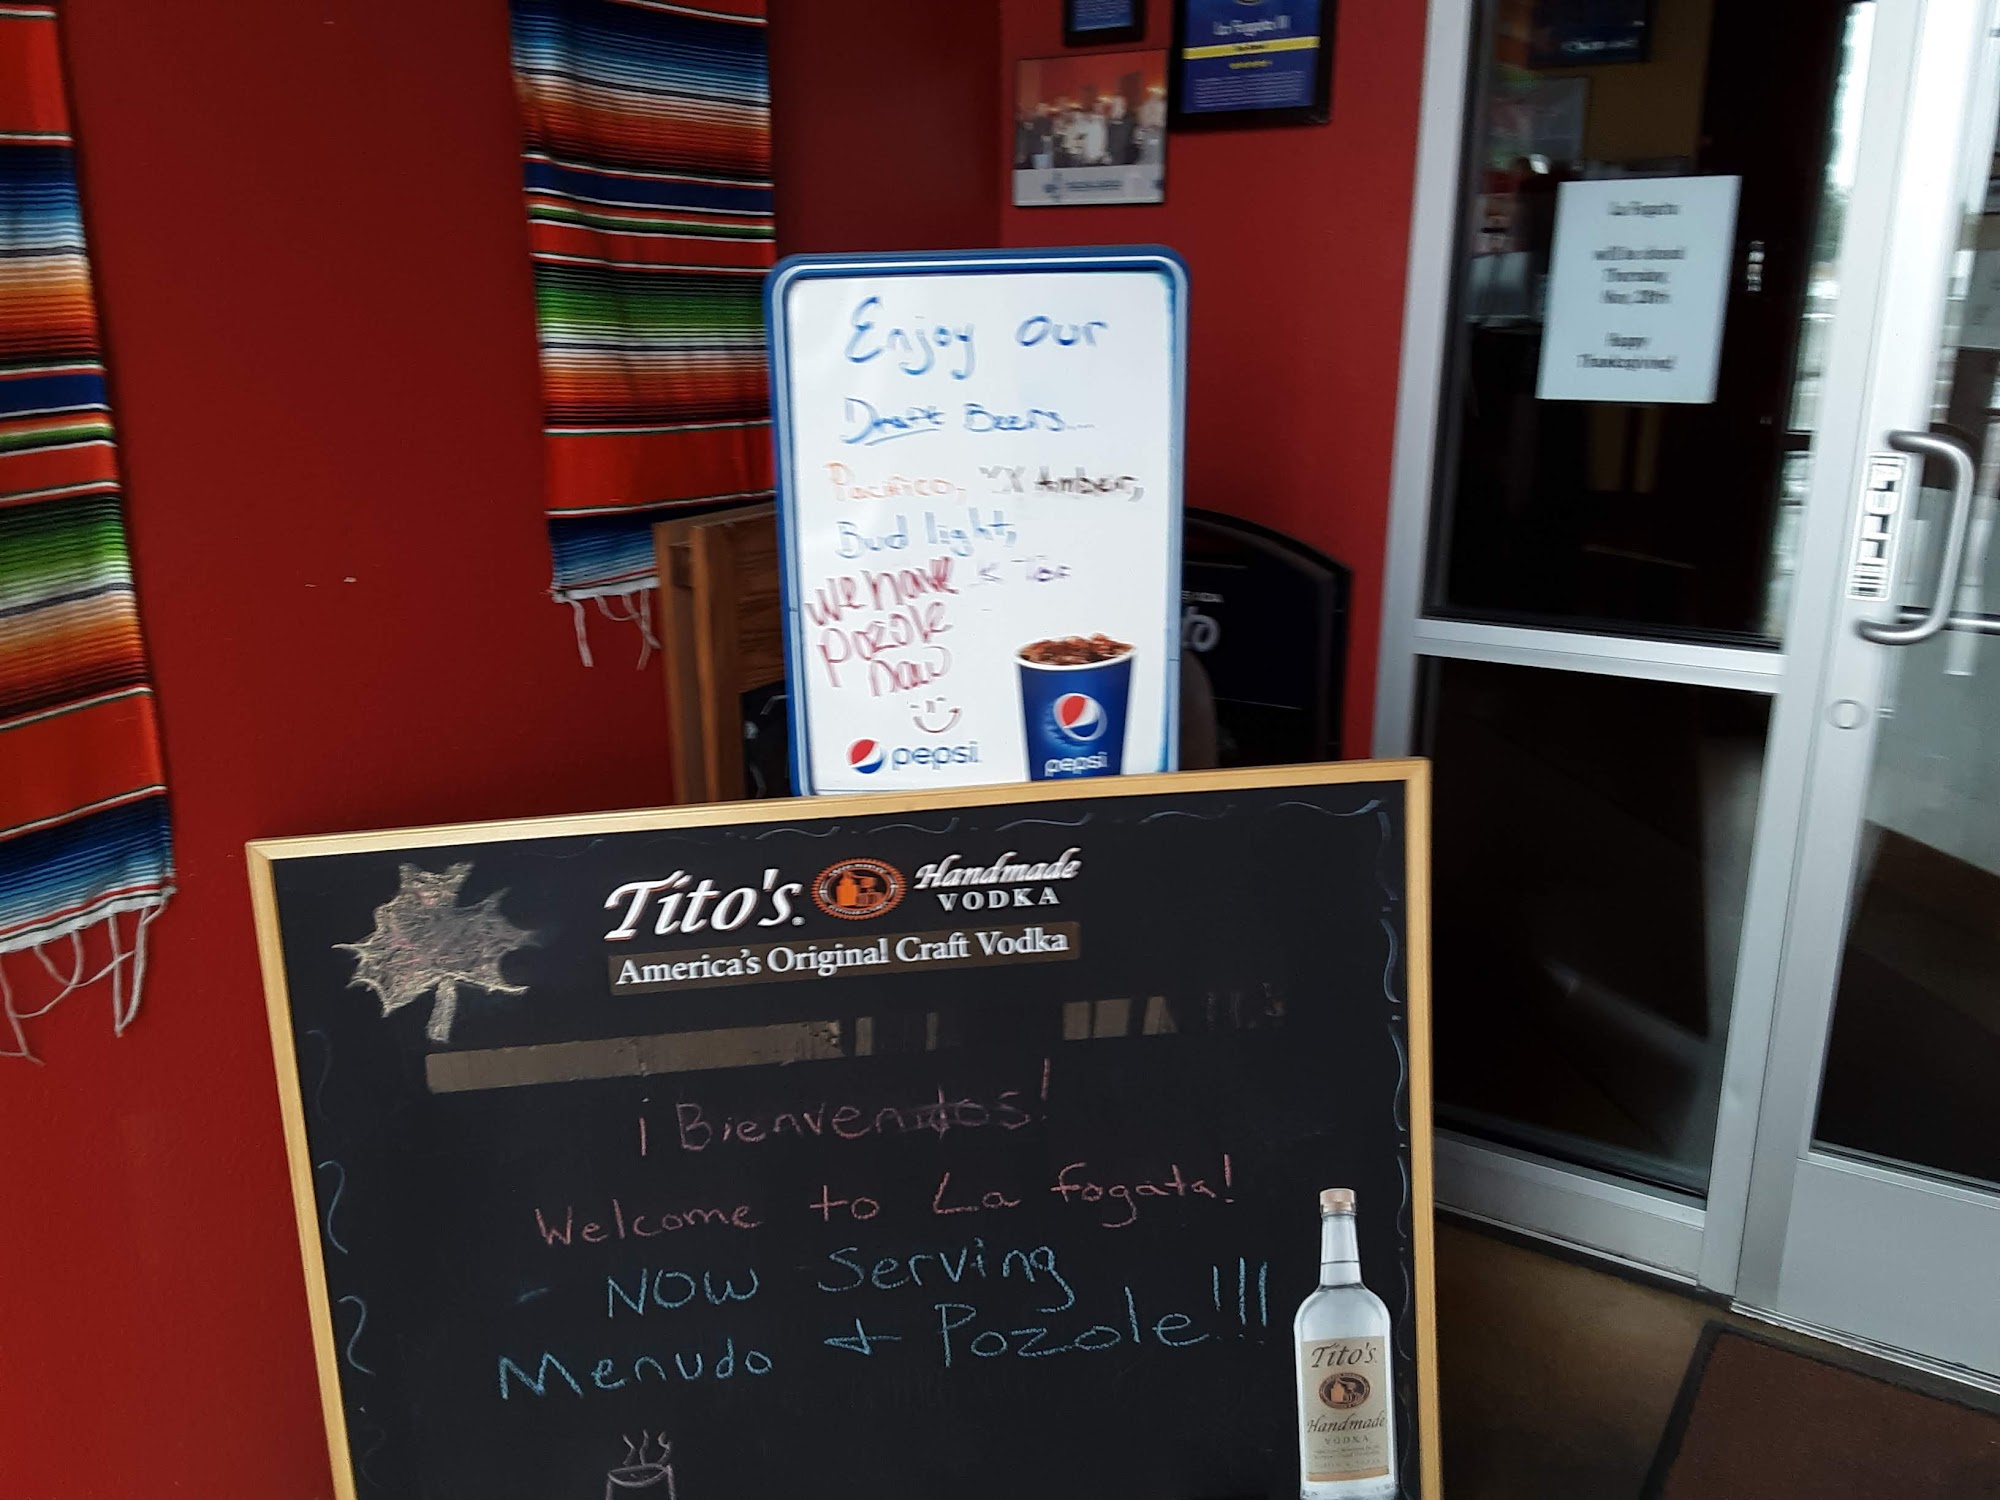 La Fogata II
La Fogata
will be closed
Thursday
Nov, 28th
Happy
Thanksgiving!
PULL
Enjoy our
Draft Beers....
Pacifico, XX Amber,
Bud light,
We have
Pozole
Now
pepsi
pepsi
Tito's Handmade
VODKA
America's Original Craft Vodka
¡Bienvenidos!
Welcome to La fogata!
- NOW Serving
Menudo + Pozole!!!
Tito's
Handmade
VODKA